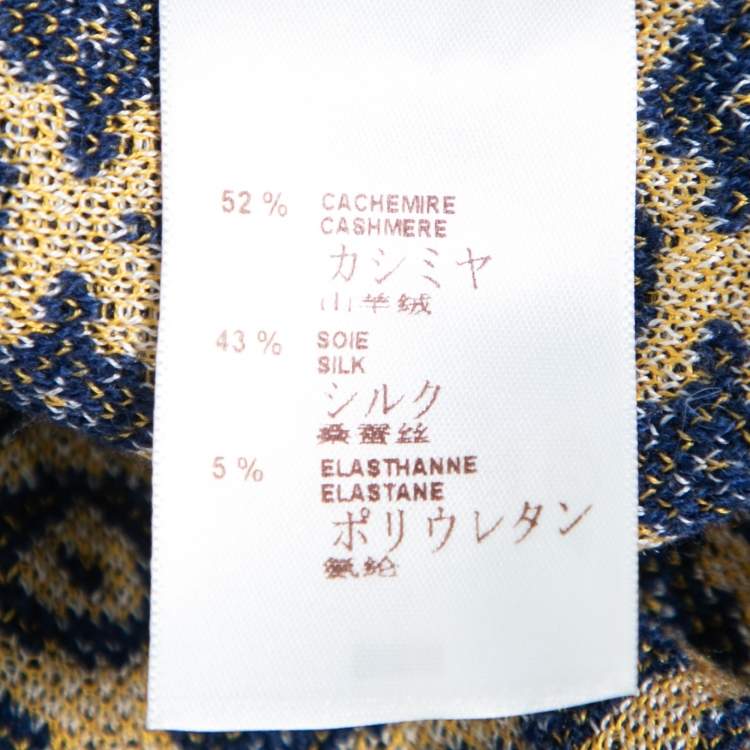 52 % CACHEMIRE
CASHMERE
カシミヤ
山羊绒
43 % SOIE
SILK
シルク
桑蚕丝
5 % ELASTHANNE
ELASTANE
ポリウレタン
氨纶